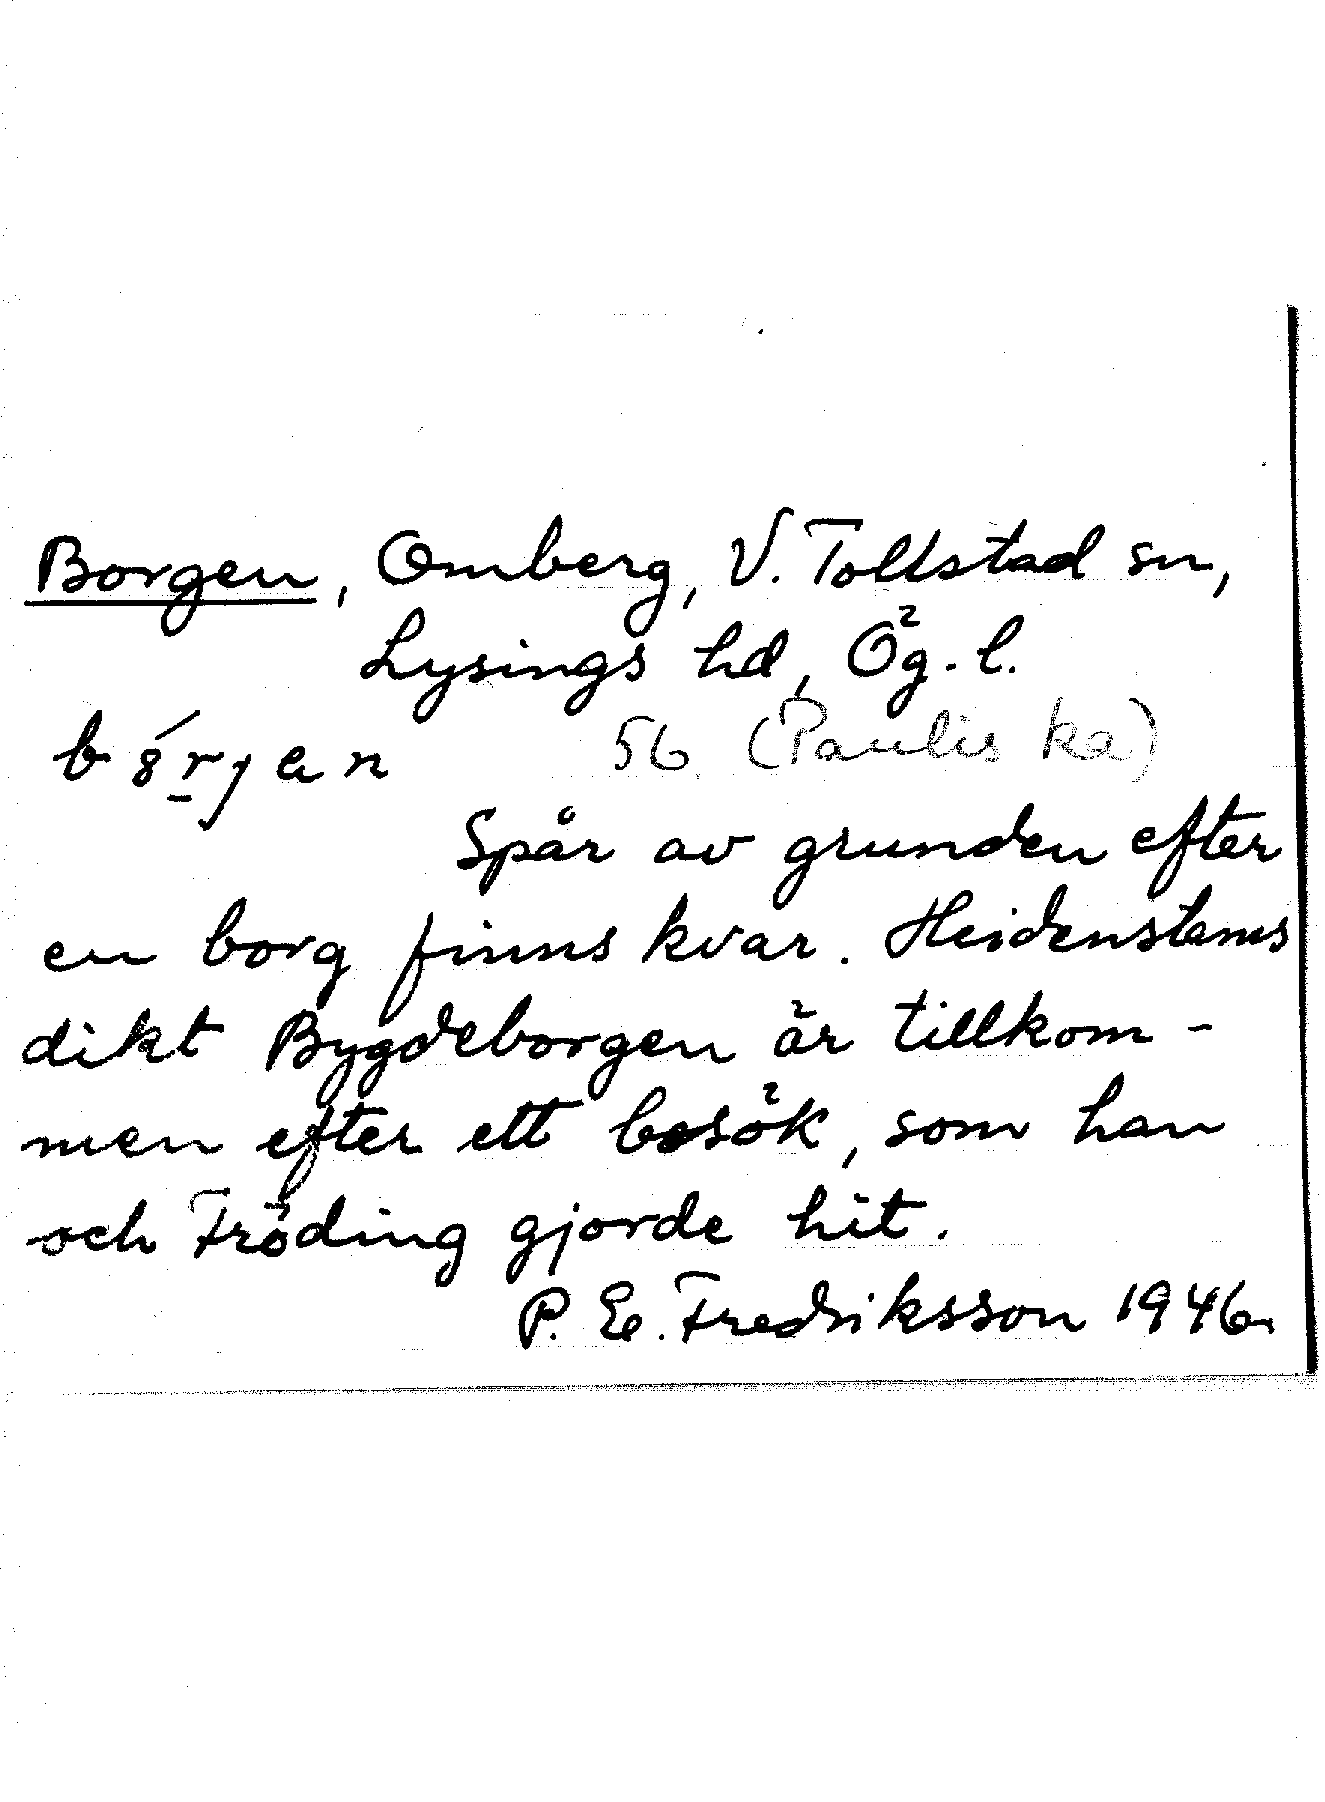 Borgen, Omberg, V. Tollstad sn,
Lysings hd, Ög. l.
56 (Paulis ka)
Spår av grunden efter
en borg finns kvar. Heidenstams
dikt Bygdeborgen är tillkom-
men efter ett besök, som han
och Fröding gjorde hit.
P. E. Fredriksson 1946